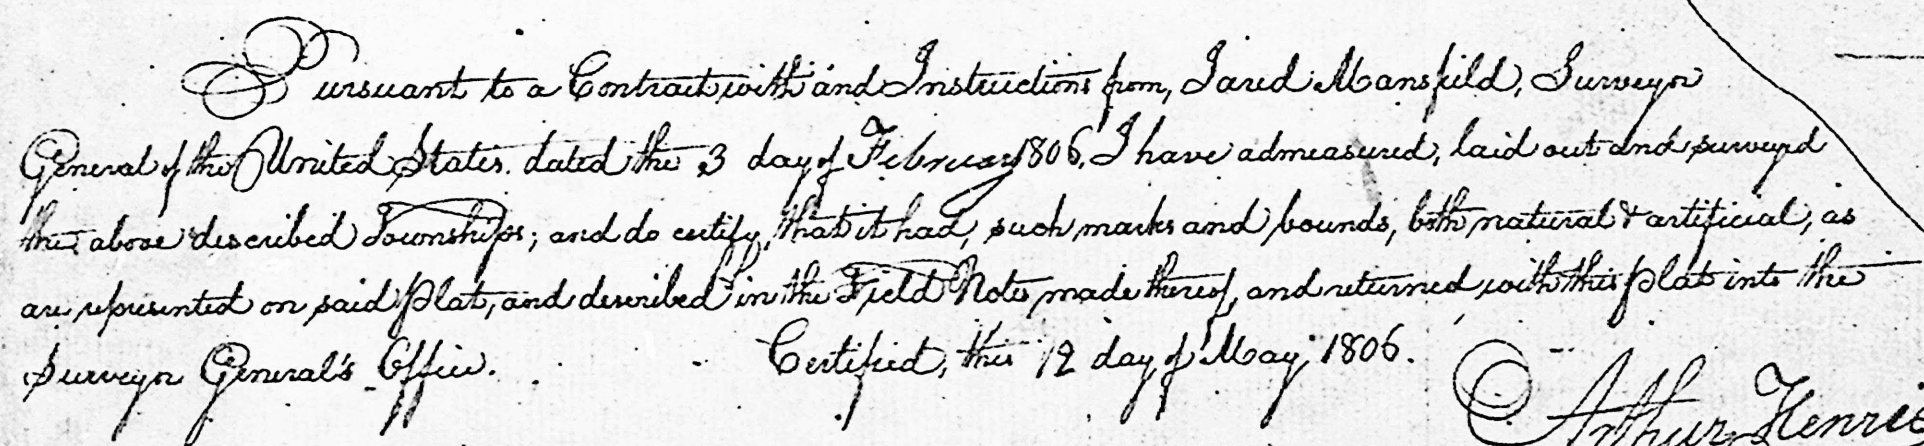 Pursuant to a Contract with and Instructions from, Jared Mansfield, Surveyor
General of the United States. dated the 3 day of February 1806, I have admeasured, laid out and surveyd
the above described Townships; and do certify, that it had, such marks and bounds, both natural & artificial, as
are represented on said Plat, and described in the Field Notes, made thereof, and returned with this plat into the
Surveyor General's Office. Certified, this 12 day of May, 1806.
Arthur Henrie